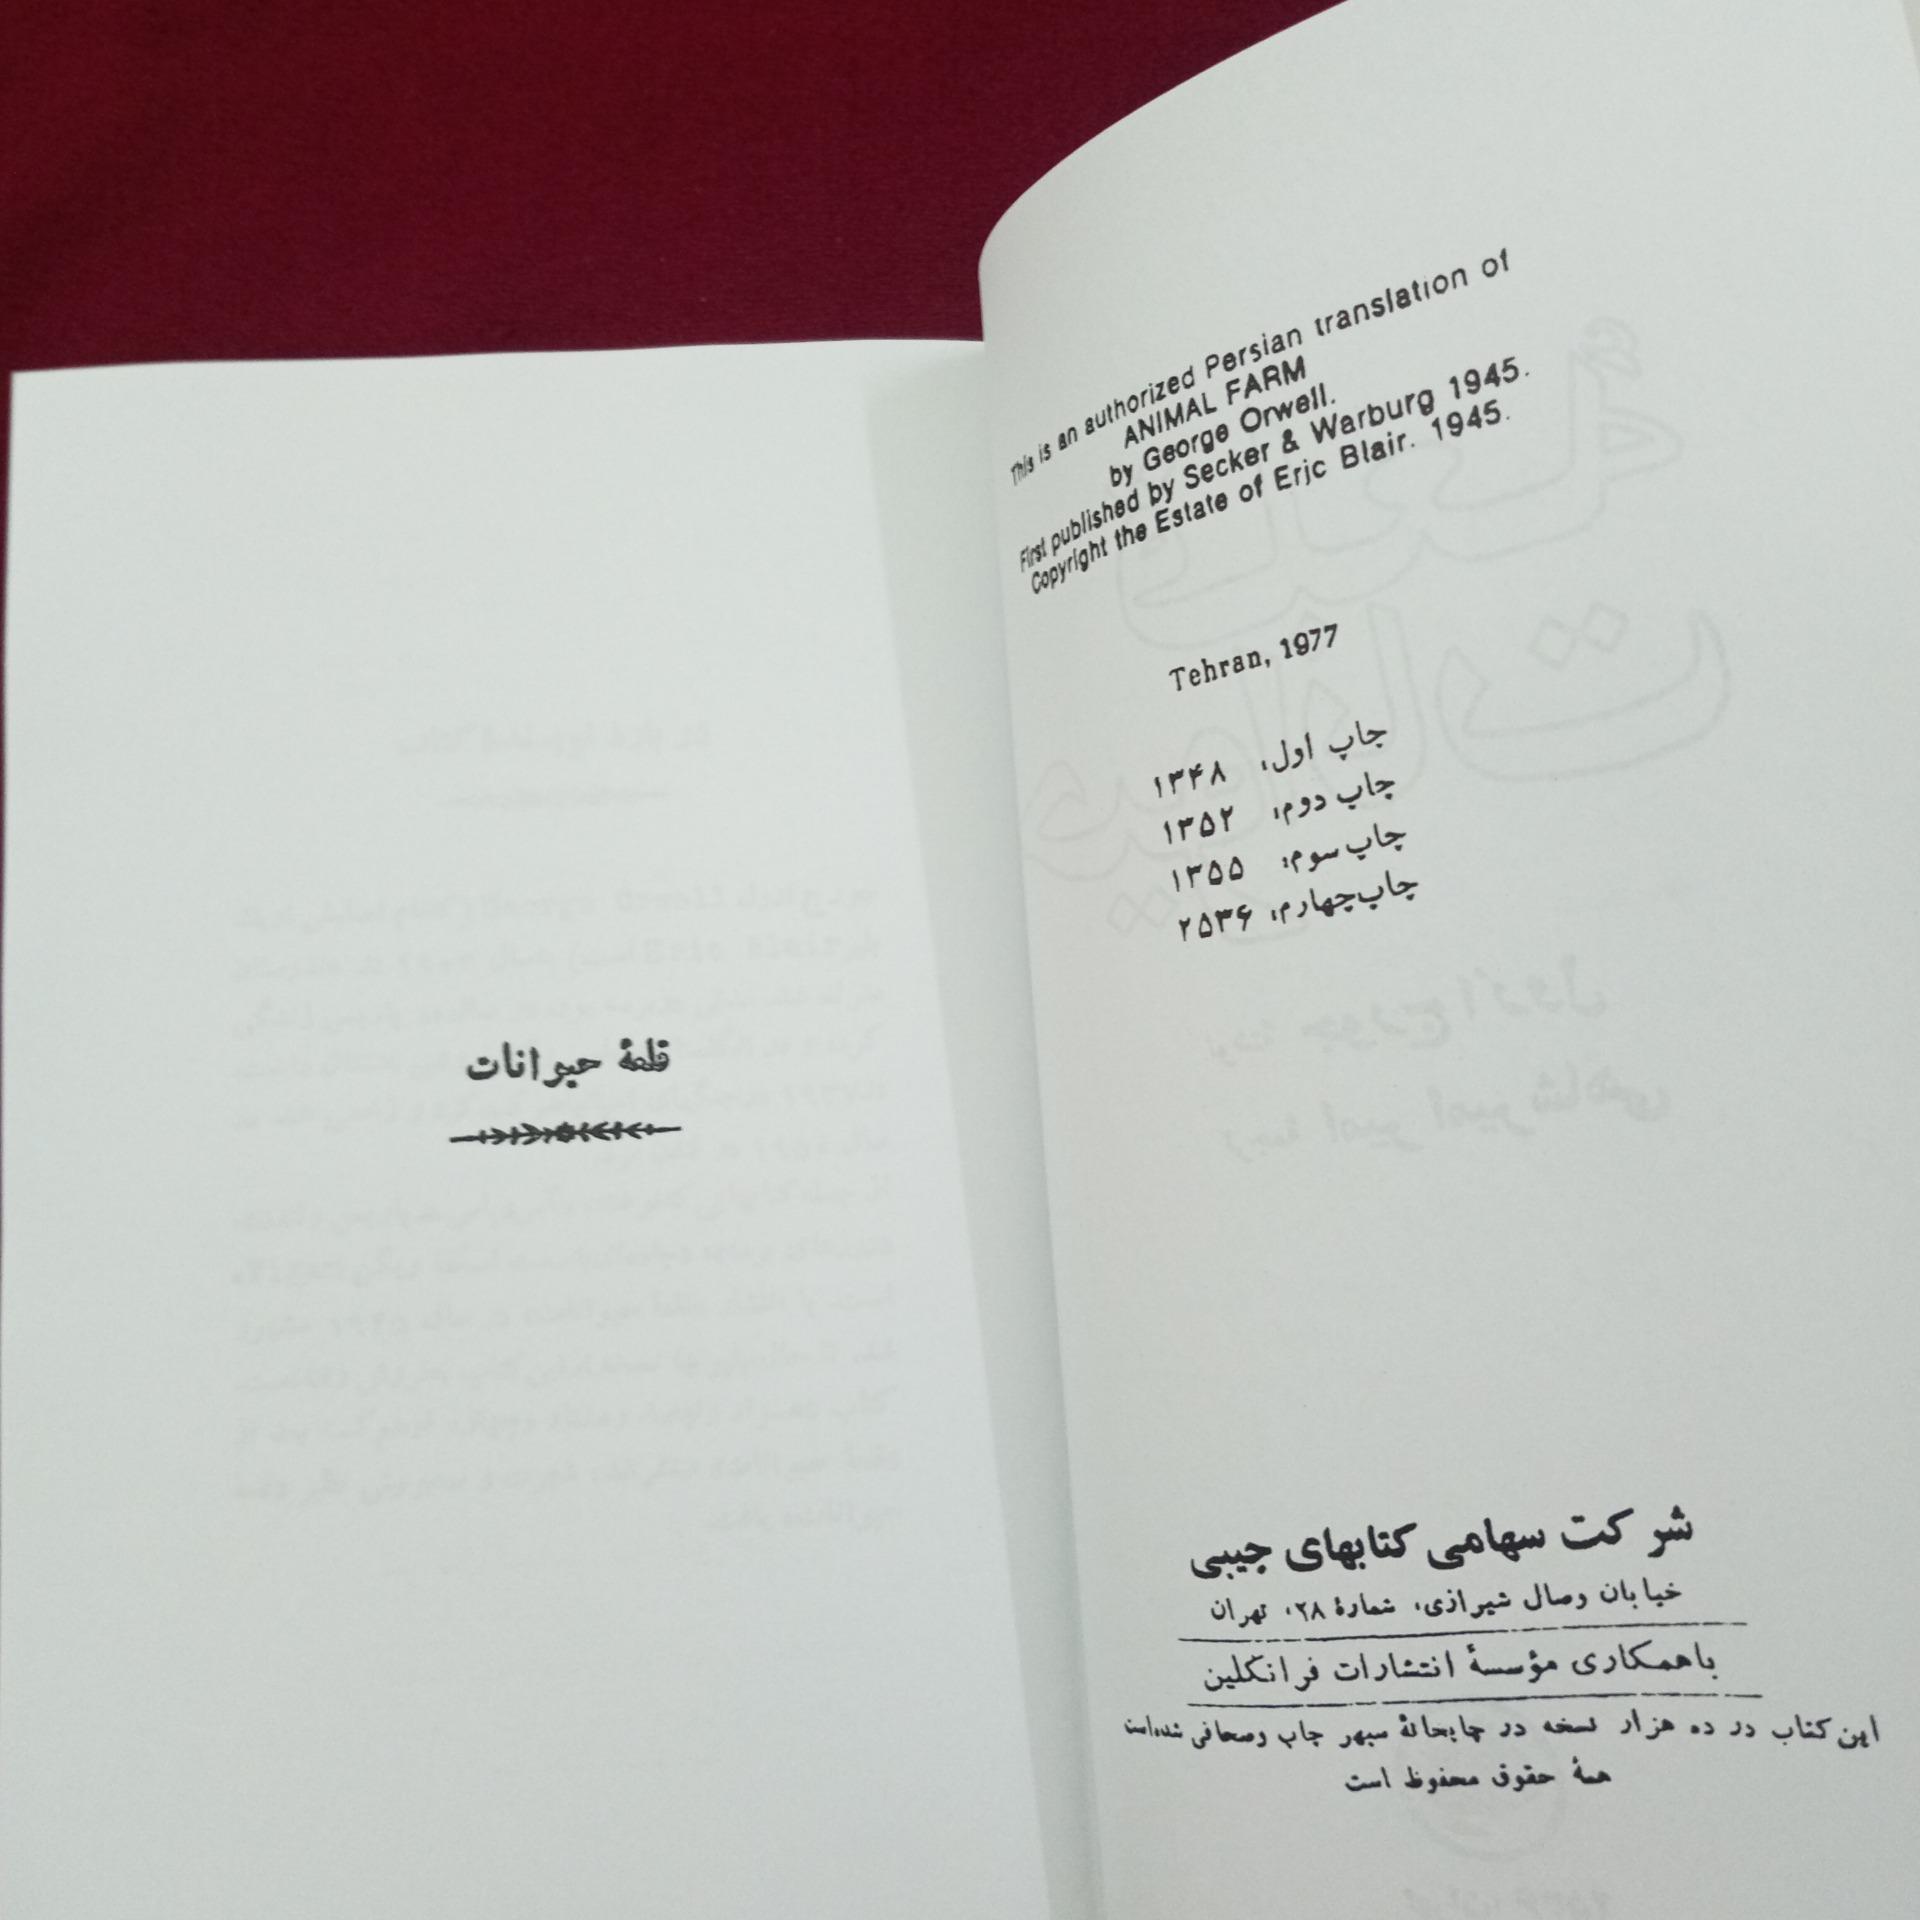 This is an authorized Persian translation of
ANIMAL FARM
by George Orwell.
First published by Secker & Warburg 1945.
Copyright the Estate of Eric Blair. 1945.
Tehran, 1977
چاپ اول: ۱۳۴۸
چاپ دوم: ۱۳۵۲
چاپ سوم: ۱۳۵۵
چاپ چهارم: ۲۵۳۶
شرکت سهامی کتابهای جیبی
خیابان وصال شیرازی، شمارهٔ ۲۸، تهران
باهمکاری مؤسسهٔ انتشارات فرانکلین
این کتاب در ده هزار نسخه در چاپخانهٔ سپهر چاپ وصحافی شده‌است
همهٔ حقوق محفوظ است
قلعهٔ حیوانات